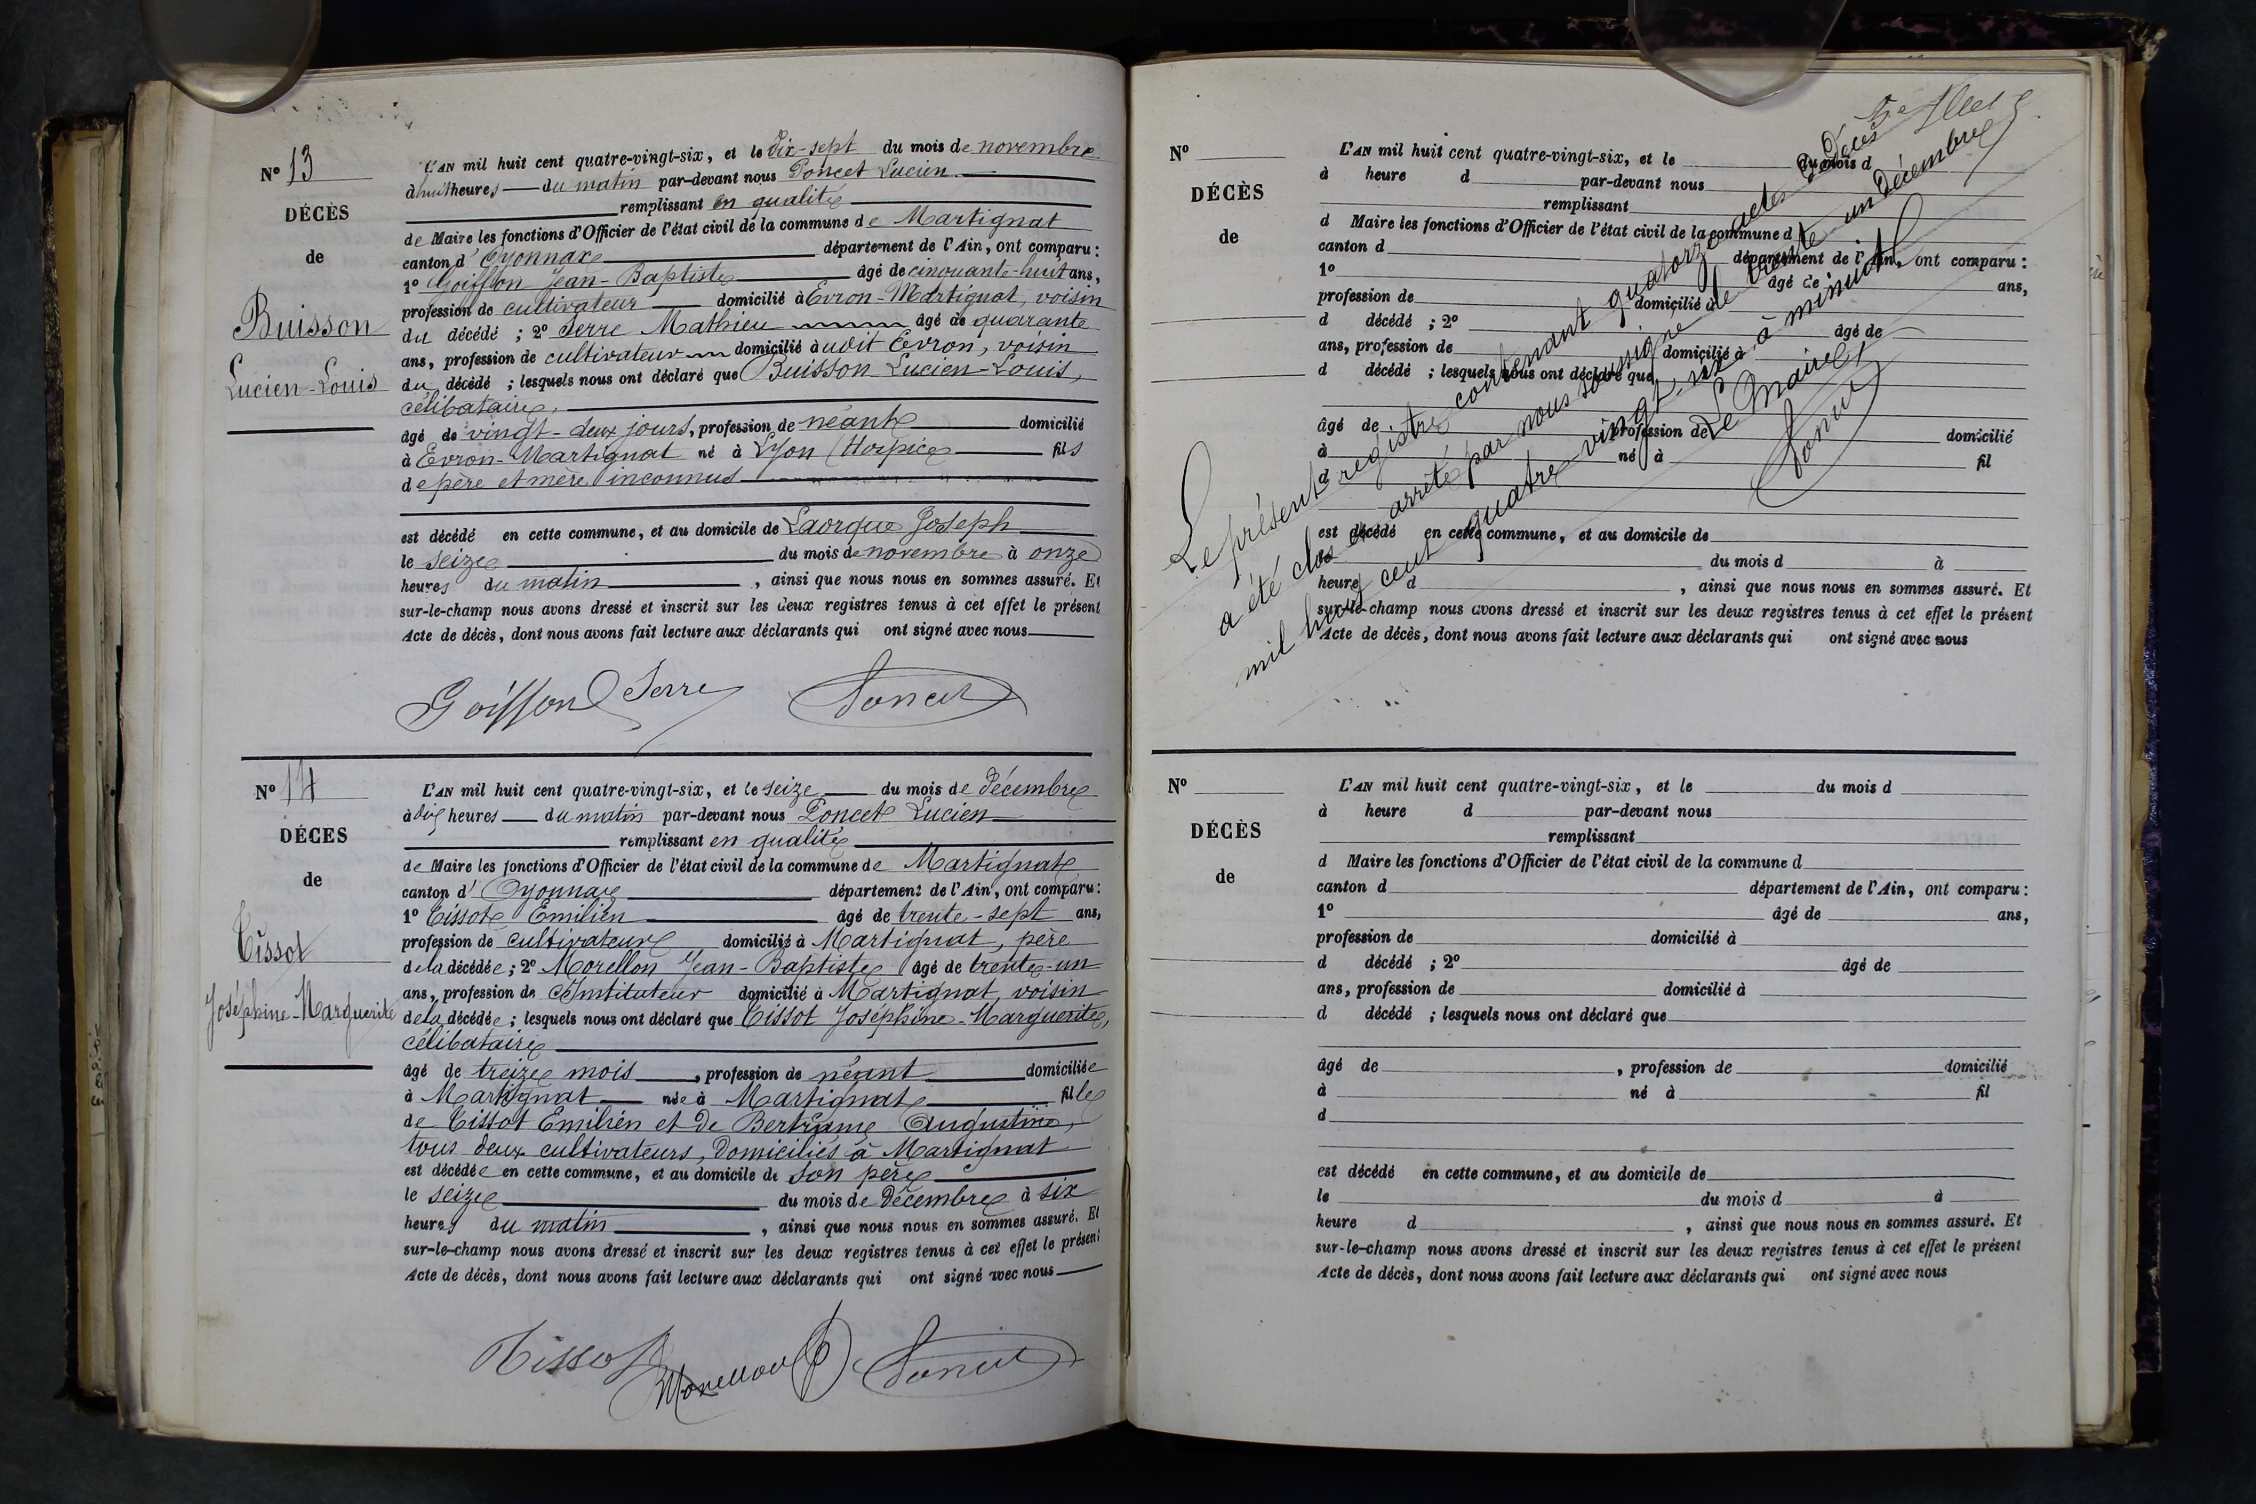 N° 13
DÉCÈS
de
Buisson
Lucien-Louis
L'AN mil huit cent quatre-vingt-six, et le dix-sept du mois de novembre
à huit heures du matin par-devant nous Poncet Lucien
remplissant en qualité
de Maire les fonctions d'Officier de l'état civil de la commune de Martignat
canton d'Oyonnax département de l'Ain, ont comparu :
1° Goiffon Jean-Baptiste âgé de cinquante-huit ans,
profession de cultivateur domicilié à Evron-Martignat, voisin
du décédé ; 2° Serre Mathieu âgé de quarante
ans, profession de cultivateur domicilié audit Evron, voisin
du décédé ; lesquels nous ont déclaré que Buisson Lucien-Louis,
célibataire,
âgé de vingt-deux jours, profession de néant domicilié
à Evron-Martignat né à Lyon (Hospice fils
de père et mère inconnus
est décédé en cette commune, et au domicile de Laorque Joseph
le seize du mois de novembre à onze
heures du matin, ainsi que nous nous en sommes assuré. Et
sur-le-champ nous avons dressé et inscrit sur les deux registres tenus à cet effet le présent
Acte de décès, dont nous avons fait lecture aux déclarants qui ont signé avec nous
Goiffon Serre Poncet
N° 14
DÉCES
de
Tissot
Joséphine-Marguerite
L'AN mil huit cent quatre-vingt-six, et le seize du mois de Décembre
à dix heures du matin par-devant nous Poncet Lucien
remplissant en qualité
de Maire les fonctions d'Officier de l'état civil de la commune de Martignat
canton d'Oyonnax département de l'Ain, ont comparu :
1° Tissot Emilien âgé de trente-sept ans,
profession de cultivateur domicilié à Martignat, père
de la décédée ; 2° Morellon Jean-Baptiste âgé de trente-un
ans, profession de Instituteur domicilié à Martignat, voisin
de la décédée ; lesquels nous ont déclaré que Tissot Joséphine-Marguerite,
célibataire
âgé de treize mois, profession de néant domiciliée
à Martignat née à Martignat fille
de Tissot Emilien et de Bertrame Augustine,
tous deux cultivateurs, domiciliés à Martignat
est décédée en cette commune, et au domicile de son père
le seize du mois de Décembre à six
heures du matin, ainsi que nous nous en sommes assuré. Et
sur-le-champ nous avons dressé et inscrit sur les deux registres tenus à cet effet le présent
Acte de décès, dont nous avons fait lecture aux déclarants qui ont signé avec nous
Tissot Morellon Poncet
N°
DÉCÈS
de
L'AN mil huit cent quatre-vingt-six, et le du mois d
à heure d par-devant nous
remplissant
d Maire les fonctions d'Officier de l'état civil de la commune d
canton d département de l'Ain, ont comparu :
1° âgé de ans,
profession de domicilié à
d décédé ; 2° âgé de
ans, profession de domicilié à
d décédé ; lesquels nous ont déclaré que
âgé de profession de domicilié
à né à fil
d
est décédé en cette commune, et au domicile de
le du mois d à
heure d , ainsi que nous nous en sommes assuré. Et
sur-le-champ nous avons dressé et inscrit sur les deux registres tenus à cet effet le présent
Acte de décès, dont nous avons fait lecture aux déclarants qui ont signé avec nous
Le présent registre contenant quatorze actes de Décès
a été clos et arrêté par nous soussigné le trente-un Décembre
mil huit cent quatre vingt-six à minuit
Le Maire,
Poncet
N°
DÉCÈS
de
L'AN mil huit cent quatre-vingt-six, et le du mois d
à heure d par-devant nous
remplissant
d Maire les fonctions d'Officier de l'état civil de la commune d
canton d département de l'Ain, ont comparu :
1° âgé de ans,
profession de domicilié à
d décédé ; 2° âgé de
ans, profession de domicilié à
d décédé ; lesquels nous ont déclaré que
âgé de , profession de domicilié
à né à fil
d
est décédé en cette commune, et au domicile de
le du mois d à
heure d , ainsi que nous nous en sommes assuré. Et
sur-le-champ nous avons dressé et inscrit sur les deux registres tenus à cet effet le présent
Acte de décès, dont nous avons fait lecture aux déclarants qui ont signé avec nous